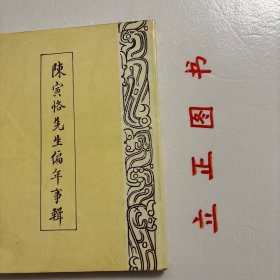 陳寅恪先生編年事輯
立正图书